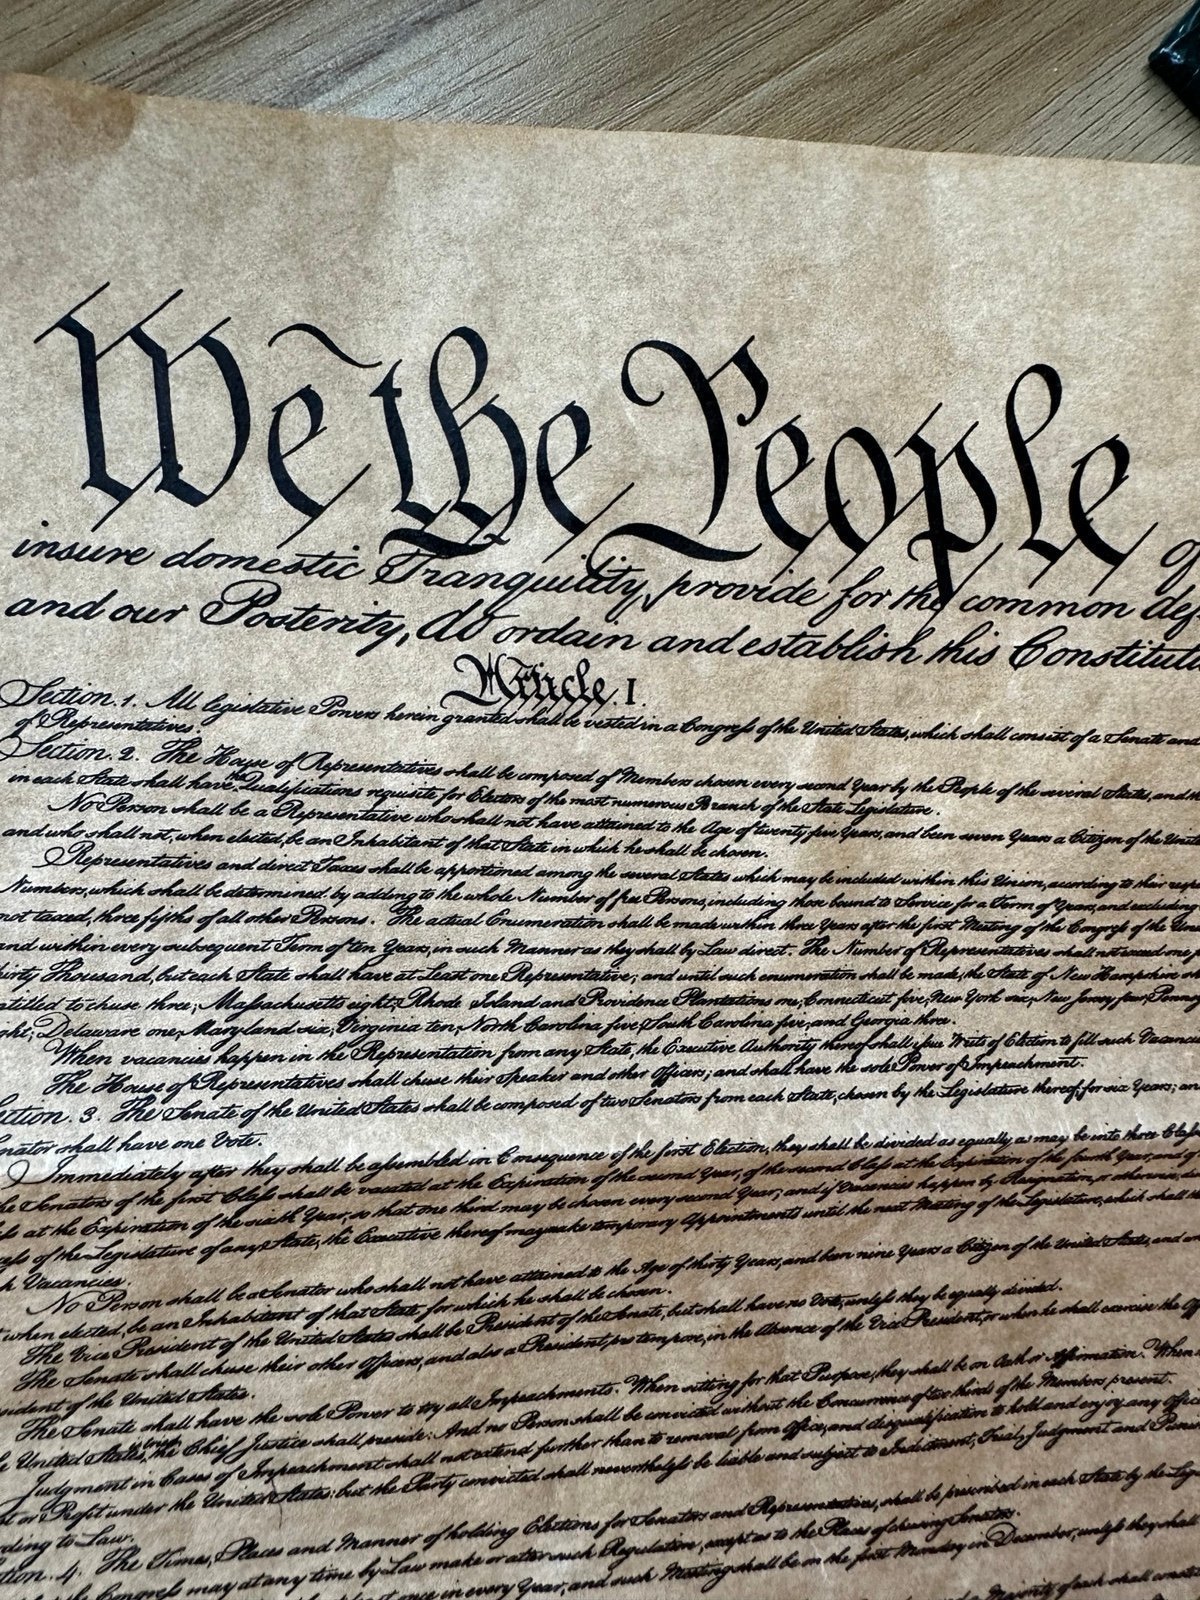 We the People of
insure domestic Tranquility, provide for the common def
and our Posterity, do ordain and establish this Constitut
Article. I.
Section. 1. All legislative Powers herein granted shall be vested in a Congress of the United States, which shall consist of a Senate and
of Representatives.
Section. 2. The House of Representatives shall be composed of Members chosen every second Year by the People of the several States, and th
in each State shall have the Qualifications requisite for Electors of the most numerous Branch of the State Legislature.
No Person shall be a Representative who shall not have attained to the Age of twenty five Years, and been seven Years a Citizen of the Unite
and who shall not, when elected, be an Inhabitant of that State in which he shall be chosen.
Representatives and direct Taxes shall be apportioned among the several States which may be included within this Union, according to their resp
Numbers, which shall be determined by adding to the whole Number of free Persons, including those bound to Service for a Term of Years, and excluding
not taxed, three fifths of all other Persons. The actual Enumeration shall be made within three Years after the first Meeting of the Congress of the Unit
and within every subsequent Term of ten Years, in such Manner as they shall by Law direct. The Number of Representatives shall not exceed one f
hirty Thousand, but each State shall have at Least one Representative; and until such enumeration shall be made, the State of New Hampshire sh
ntitled to chuse three, Massachusetts eight, Rhode Island and Providence Plantations one, Connecticut five, New York six, New Jersey four, Penns
ght, Delaware one, Maryland six, Virginia ten, North Carolina five, South Carolina five, and Georgia three.
When vacancies happen in the Representation from any State, the Executive Authority thereof shall issue Writs of Election to fill such Vacancie
The House of Representatives shall chuse their Speaker and other Officers; and shall have the sole Power of Impeachment.
ection. 3. The Senate of the United States shall be composed of two Senators from each State, chosen by the Legislature thereof, for six Years; an
enator shall have one Vote.
Immediately after they shall be assembled in Consequence of the first Election, they shall be divided as equally as may be into three Class
he Senators of the first Class shall be vacated at the Expiration of the second Year, of the second Class at the Expiration of the fourth Year, and of
ass at the Expiration of the sixth Year, so that one third may be chosen every second Year; and if Vacancies happen by Resignation, or otherwise, du
cess of the Legislature of any State, the Executive thereof may make temporary Appointments until the next Meeting of the Legislature, which shall th
h Vacancies.
No Person shall be a Senator who shall not have attained to the Age of thirty Years, and been nine Years a Citizen of the United States, and wh
, when elected, be an Inhabitant of that State for which he shall be chosen.
The Vice President of the United States shall be President of the Senate, but shall have no Vote, unless they be equally divided.
The Senate shall chuse their other Officers, and also a President pro tempore, in the Absence of the Vice President, or when he shall exercise the Off
sident of the United States.
The Senate shall have the sole Power to try all Impeachments. When sitting for that Purpose, they shall be on Oath or Affirmation. When
e United States is tried, the Chief Justice shall preside: And no Person shall be convicted without the Concurrence of two thirds of the Members present.
Judgment in Cases of Impeachment shall not extend further than to removal from Office, and disqualification to hold and enjoy any Offic
st or Profit under the United States: but the Party convicted shall nevertheless be liable and subject to Indictment, Trial, Judgment and Punis
rding to Law.
tion. 4. The Times, Places and Manner of holding Elections for Senators and Representatives, shall be prescribed in each State by the Legis
the Congress may at any time by Law make or alter such Regulations, except as to the Places of chusing Senators.
at least once in every Year, and such Meeting shall be on the first Monday in December, unless they shall
Majority of each shall constit